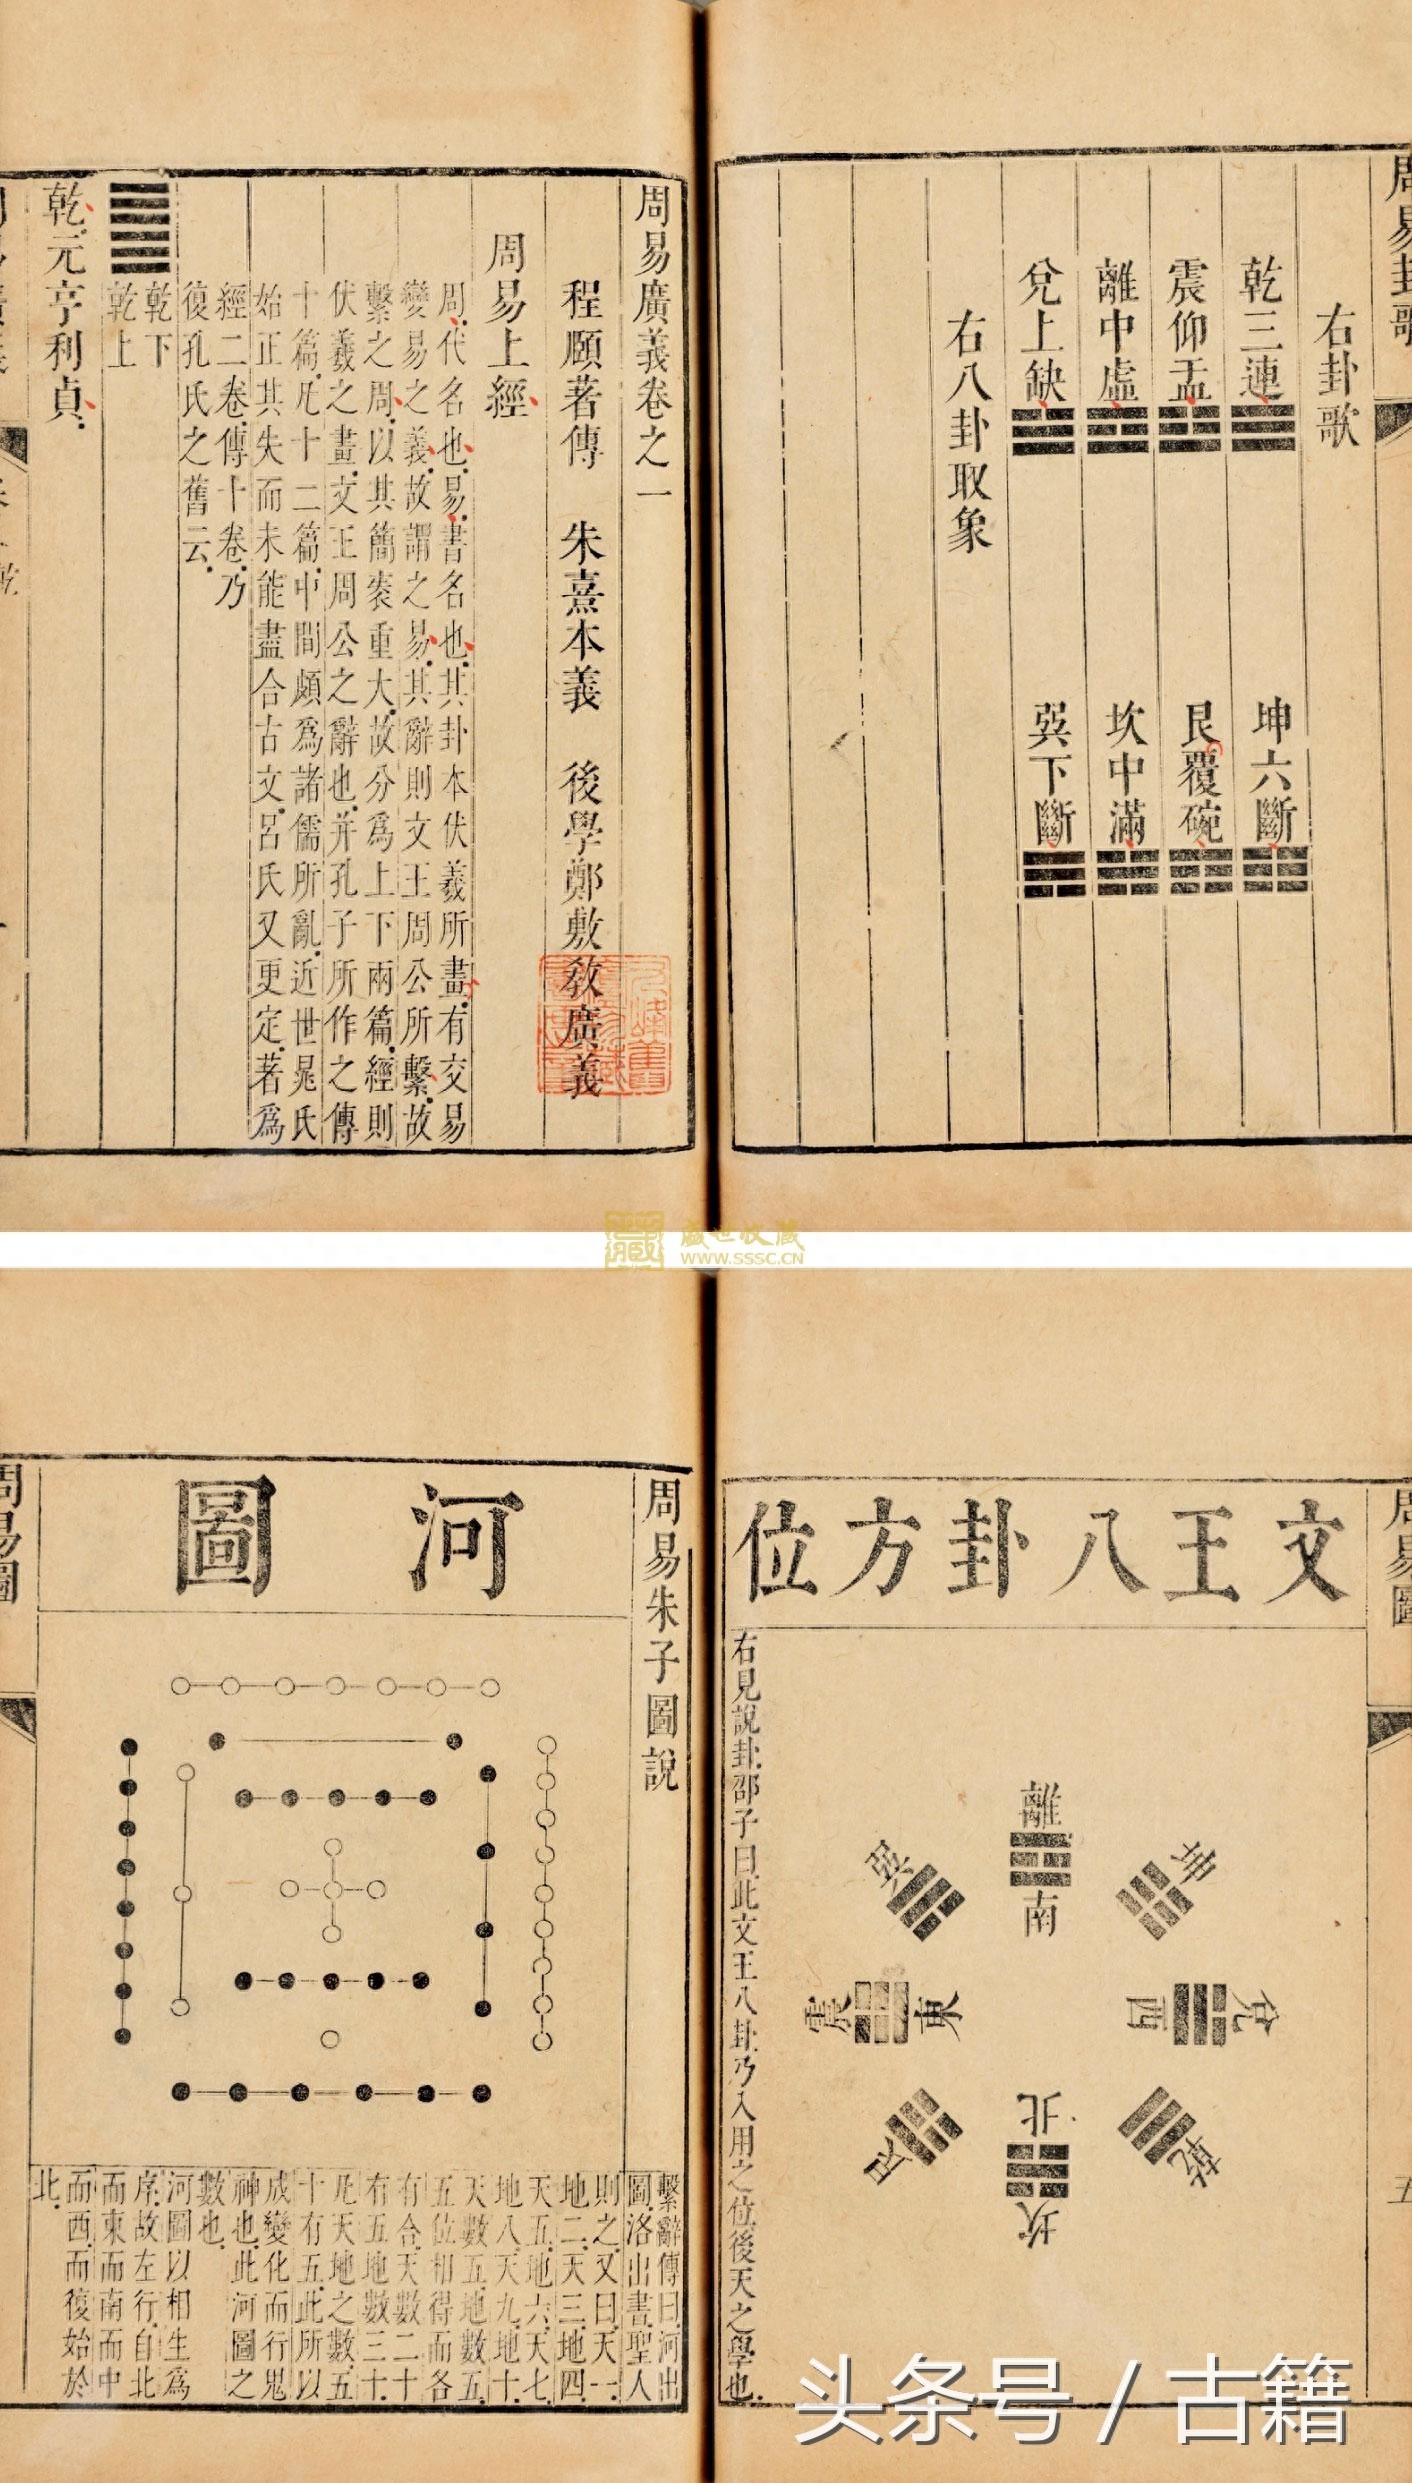 周易卦歌
右卦歌
乾三連 坤六斷
震仰盂 艮覆碗
離中虛 坎中滿
兌上缺 巽下斷
右八卦取象
周易廣義卷之一
程頤著傳 朱熹本義 後學鄭敷敎廣義
周易上經
周代名也易書名也其卦本伏羲所畫有交易
變易之義故謂之易其辭則文王周公所繫故
繫之周以其簡袠重大故分為上下兩篇經則
伏羲之畫文王周公之辭也并孔子所作之傳
十篇凡十二篇中間頗為諸儒所亂近世晁氏
始正其失而未能盡合古文呂氏又更定著為
經二卷傳十卷乃
復孔氏之舊云
乾下
乾上
乾元亨利貞
藏世收藏
WWW.SSSC.CN
周易圖
五
文王八卦方位
離
南
坤
兌
西
乾
北
坎
艮
震
東
巽
右見說卦邵子曰此文王八卦乃入用之位後天之學也
周易朱子圖說
河圖
繫辭傳曰河出
圖洛出書聖人
則之又曰天一
地二天三地四
天五地六天七
地八天九地十
天數五地數五
五位相得而各
有合天數二十
有五地數三十
凡天地之數五
十有五此所以
成變化而行鬼
神也此河圖之
數也
河圖以相生為
序故左行自北
而東而南而中
而西而復始於
北
周易圖
头条号 / 古籍